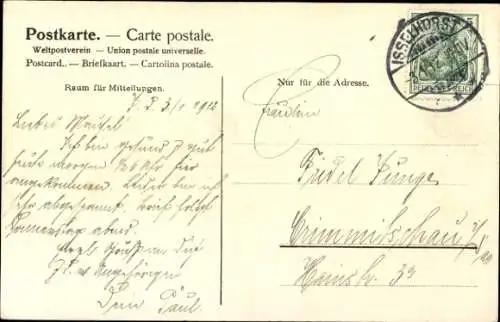 Postkarte. — Carte postale.
Weltpostverein – Union postale universelle.
Postcard. – Briefkaart. – Cartolina postale.
Raum für Mitteilungen.
Nur für die Adresse.
ISSELHORST
5
DEUTSCHES REICH
3/1 1912
Liebes
Ich bin gesund & gut
heute morgen 1/2 6 Uhr hier
angekommen. Leider bin ich
sehr abgespannt. Brief folgt
abend.
Herzl. Gruß
Angehörigen
Dein Paul.
Fräulein
Fridel Junge
Crimmitschau
Hainstr. 33